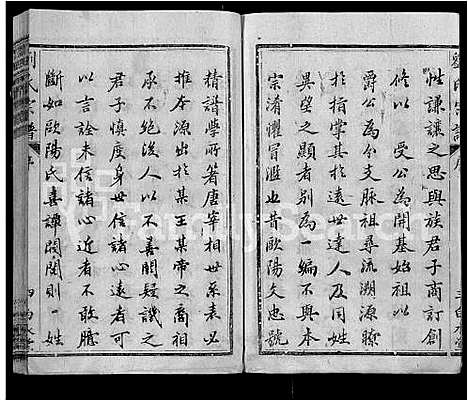 性謙讓之思與族君子商訂創
修以 受公為開基始祖以
爵公為分支脈祖尋流溯源瞭
於指掌其於遠世達人及同姓
異望之顯者別為一編不與本
宗淆懼冒濫也昔歐陽文忠號
劉氏宗譜
序
精譜學所著唐宰相世系表必
推本源出於某王某帝之裔相
承不絕後人以不善闕疑譏之
君子慎度身世信諸心遠者可
以言詮未信諸心近者不敢臆
斷如歐陽氏喜譚閥閱則一姓
FamilySearch